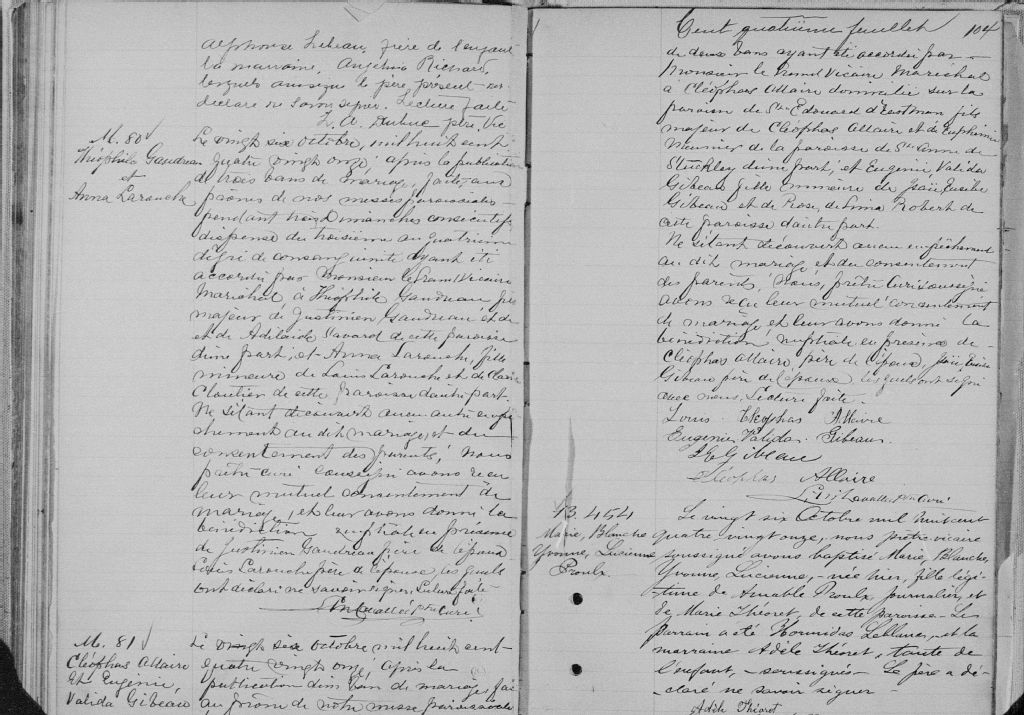 Alphonse Lebeau, père de l'enfant
la marraine, Angelina Richard,
lesquels ainsi que le père présent ont
déclaré ne savoir signer. Lecture faite
L. A. ptre, Vic
M. 80
Théophile Gaudreau
et
Anna Larouche
Le vingt six octobre, mil huit cent
quatre vingt onze, après la publication
de trois bans de mariage, faite aux
prônes de nos messes paroissiales
pendant trois dimanches consécutifs
dispense du troisième au quatrième
dégré de consanguinité ayant été
accordée par Monsieur le Grand Vicaire
Maréchal, à Théophile Gaudreau fils
majeur de Justinien Gaudreau et de
et de Adélaide Savard de cette paroisse
d'une part, et Anna Larouche, fille
mineure de Louis Larouche et de Clarisse
Cloutier de cette paroisse d'autre part.
Ne s'étant découvert aucun autre empê
chement au dit mariage, et du
consentement des parents, Nous
prêtre curé soussigné avons reçu
leur mutuel consentement de
mariage, et leur avons donné la
bénédiction nuptiale en présence
de Justinien Gaudreau père de l'époux
Louis Larouche père de l'épouse, lesquels
ont déclaré ne savoir signer. Lecture faite
Ptre Curé
M. 81
Cléophas Allaire
Et Eugénie,
Valida Gibeau
Le vingt six octobre mil huit cent
quatre vingt onze, après la
publication d'un ban de mariage, fai
au prône de notre messe paroissiale
Cent quatrième feuillet 104
de deux bans ayant été accordée par
Monsieur le Grand Vicaire Maréchal
à Cléophas Allaire domicilié sur la
paroisse de St. Edouard d'Eastman fils
majeur de Cléophas Allaire et de Euphémie
Meunier de la paroisse de Ste Anne de
Stuckley d'une part, et Eugénie Valida
Gibeau fille mineure de Eusèbe
Gibeau et de Rose de Lima Robert de
cette paroisse d'autre part.
Ne s'étant découvert aucun empêchement
au dit mariage et du consentement
des parents, Nous, prêtre Curé soussigné
avons reçu leur mutuel consentement
de mariage et leur avons donné la
bénédiction nuptiale en présence de
Cléophas Allaire père de l'époux, Eusèbe
Gibeau père de l'épouse lesquels ont signé
avec nous. Lecture faite.
Louis Cleophas Allaire
Eugenie Valida Gibeau
J E Gibeau
Cléophas Allaire
Ptre Curé
B 454
Marie, Blanche
Yvonne, Lucienne
Proulx
Le vingt six Octobre mil huit cent
quatre vingt onze, nous prêtre vicaire
soussigné avons baptisé Marie, Blanche,
Yvonne, Lucienne, née hier, fille légi-
time de Amable Proulx journalier, et
de Marie Théoret, de cette paroisse. Le
parrain a été Hormidas Leblanc, et la
marraine Adèle Théoret, tante de
l'enfant, soussignés. Le père a dé-
claré ne savoir signer
Adèle Théoret